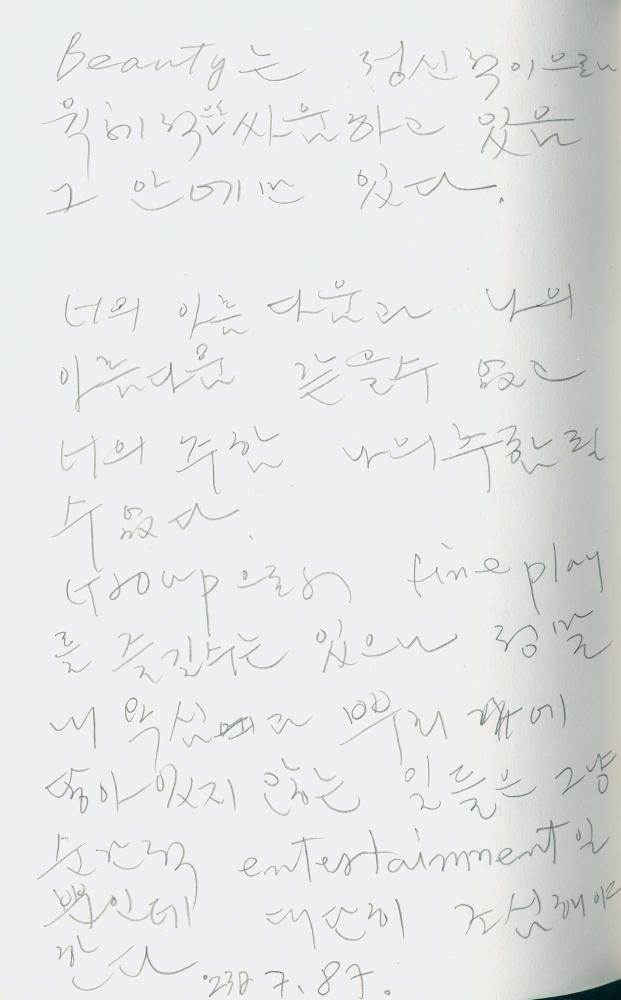 Beauty는 정신적이으로나
육체적은싸운하고 있음
그 안에만 있다.
너의 아름다운과 나의
아름다운 같을수 없고
너의 추함 나의추함될
수 없다.
Group으로서 fine play
를 즐길수는 있으나 정말
내 악심 뿌리 에
않아있지 않는 일들은 그냥
순간적 entertainment일
뿐인데 대단히 조심해야
한다
7. 87.